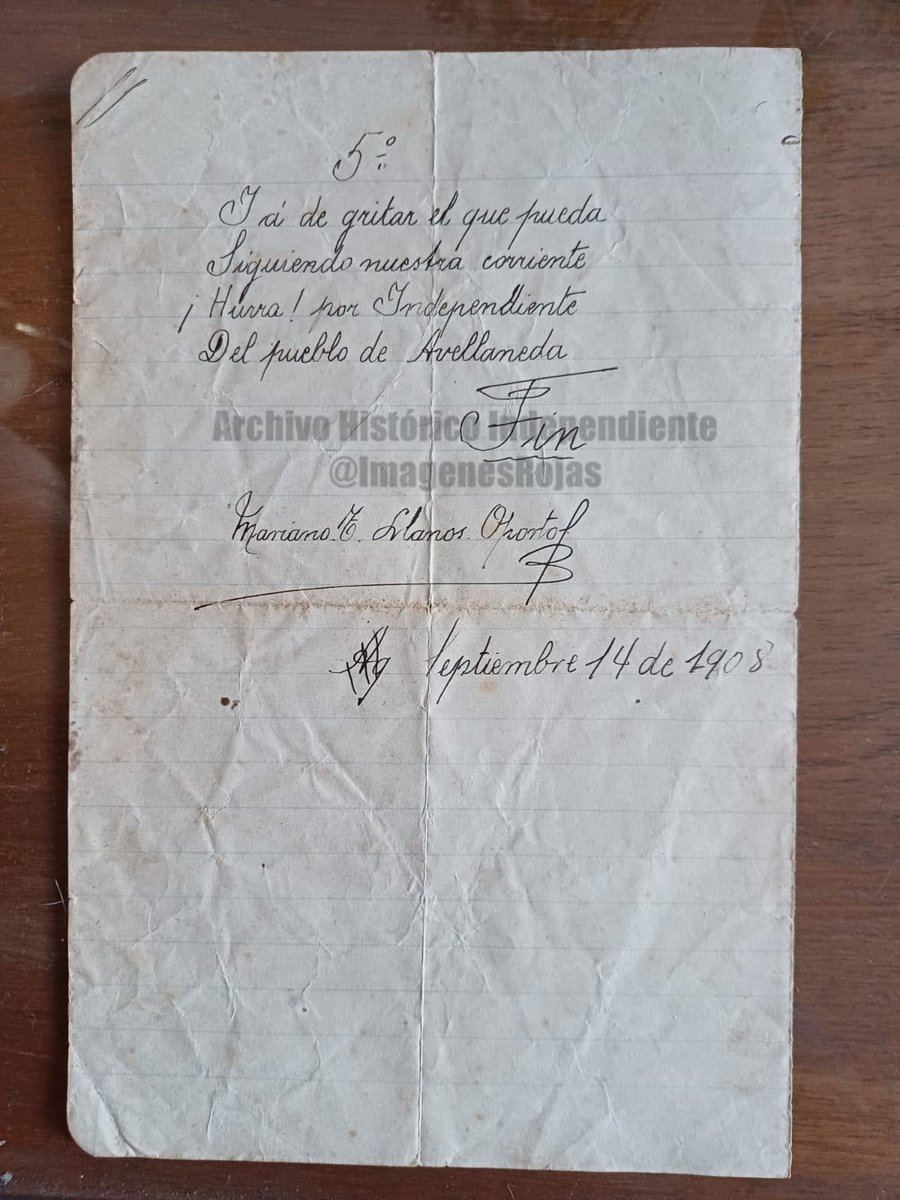 5º
I á de gritar el que pueda
Siguiendo nuestra corriente
¡Hurra! por Independiente
Del pueblo de Avellaneda
Fin
Archivo Histórico Independiente
@ImagenesRojas
Mariano T. Llanos Oportot
Septiembre 14 de 1908